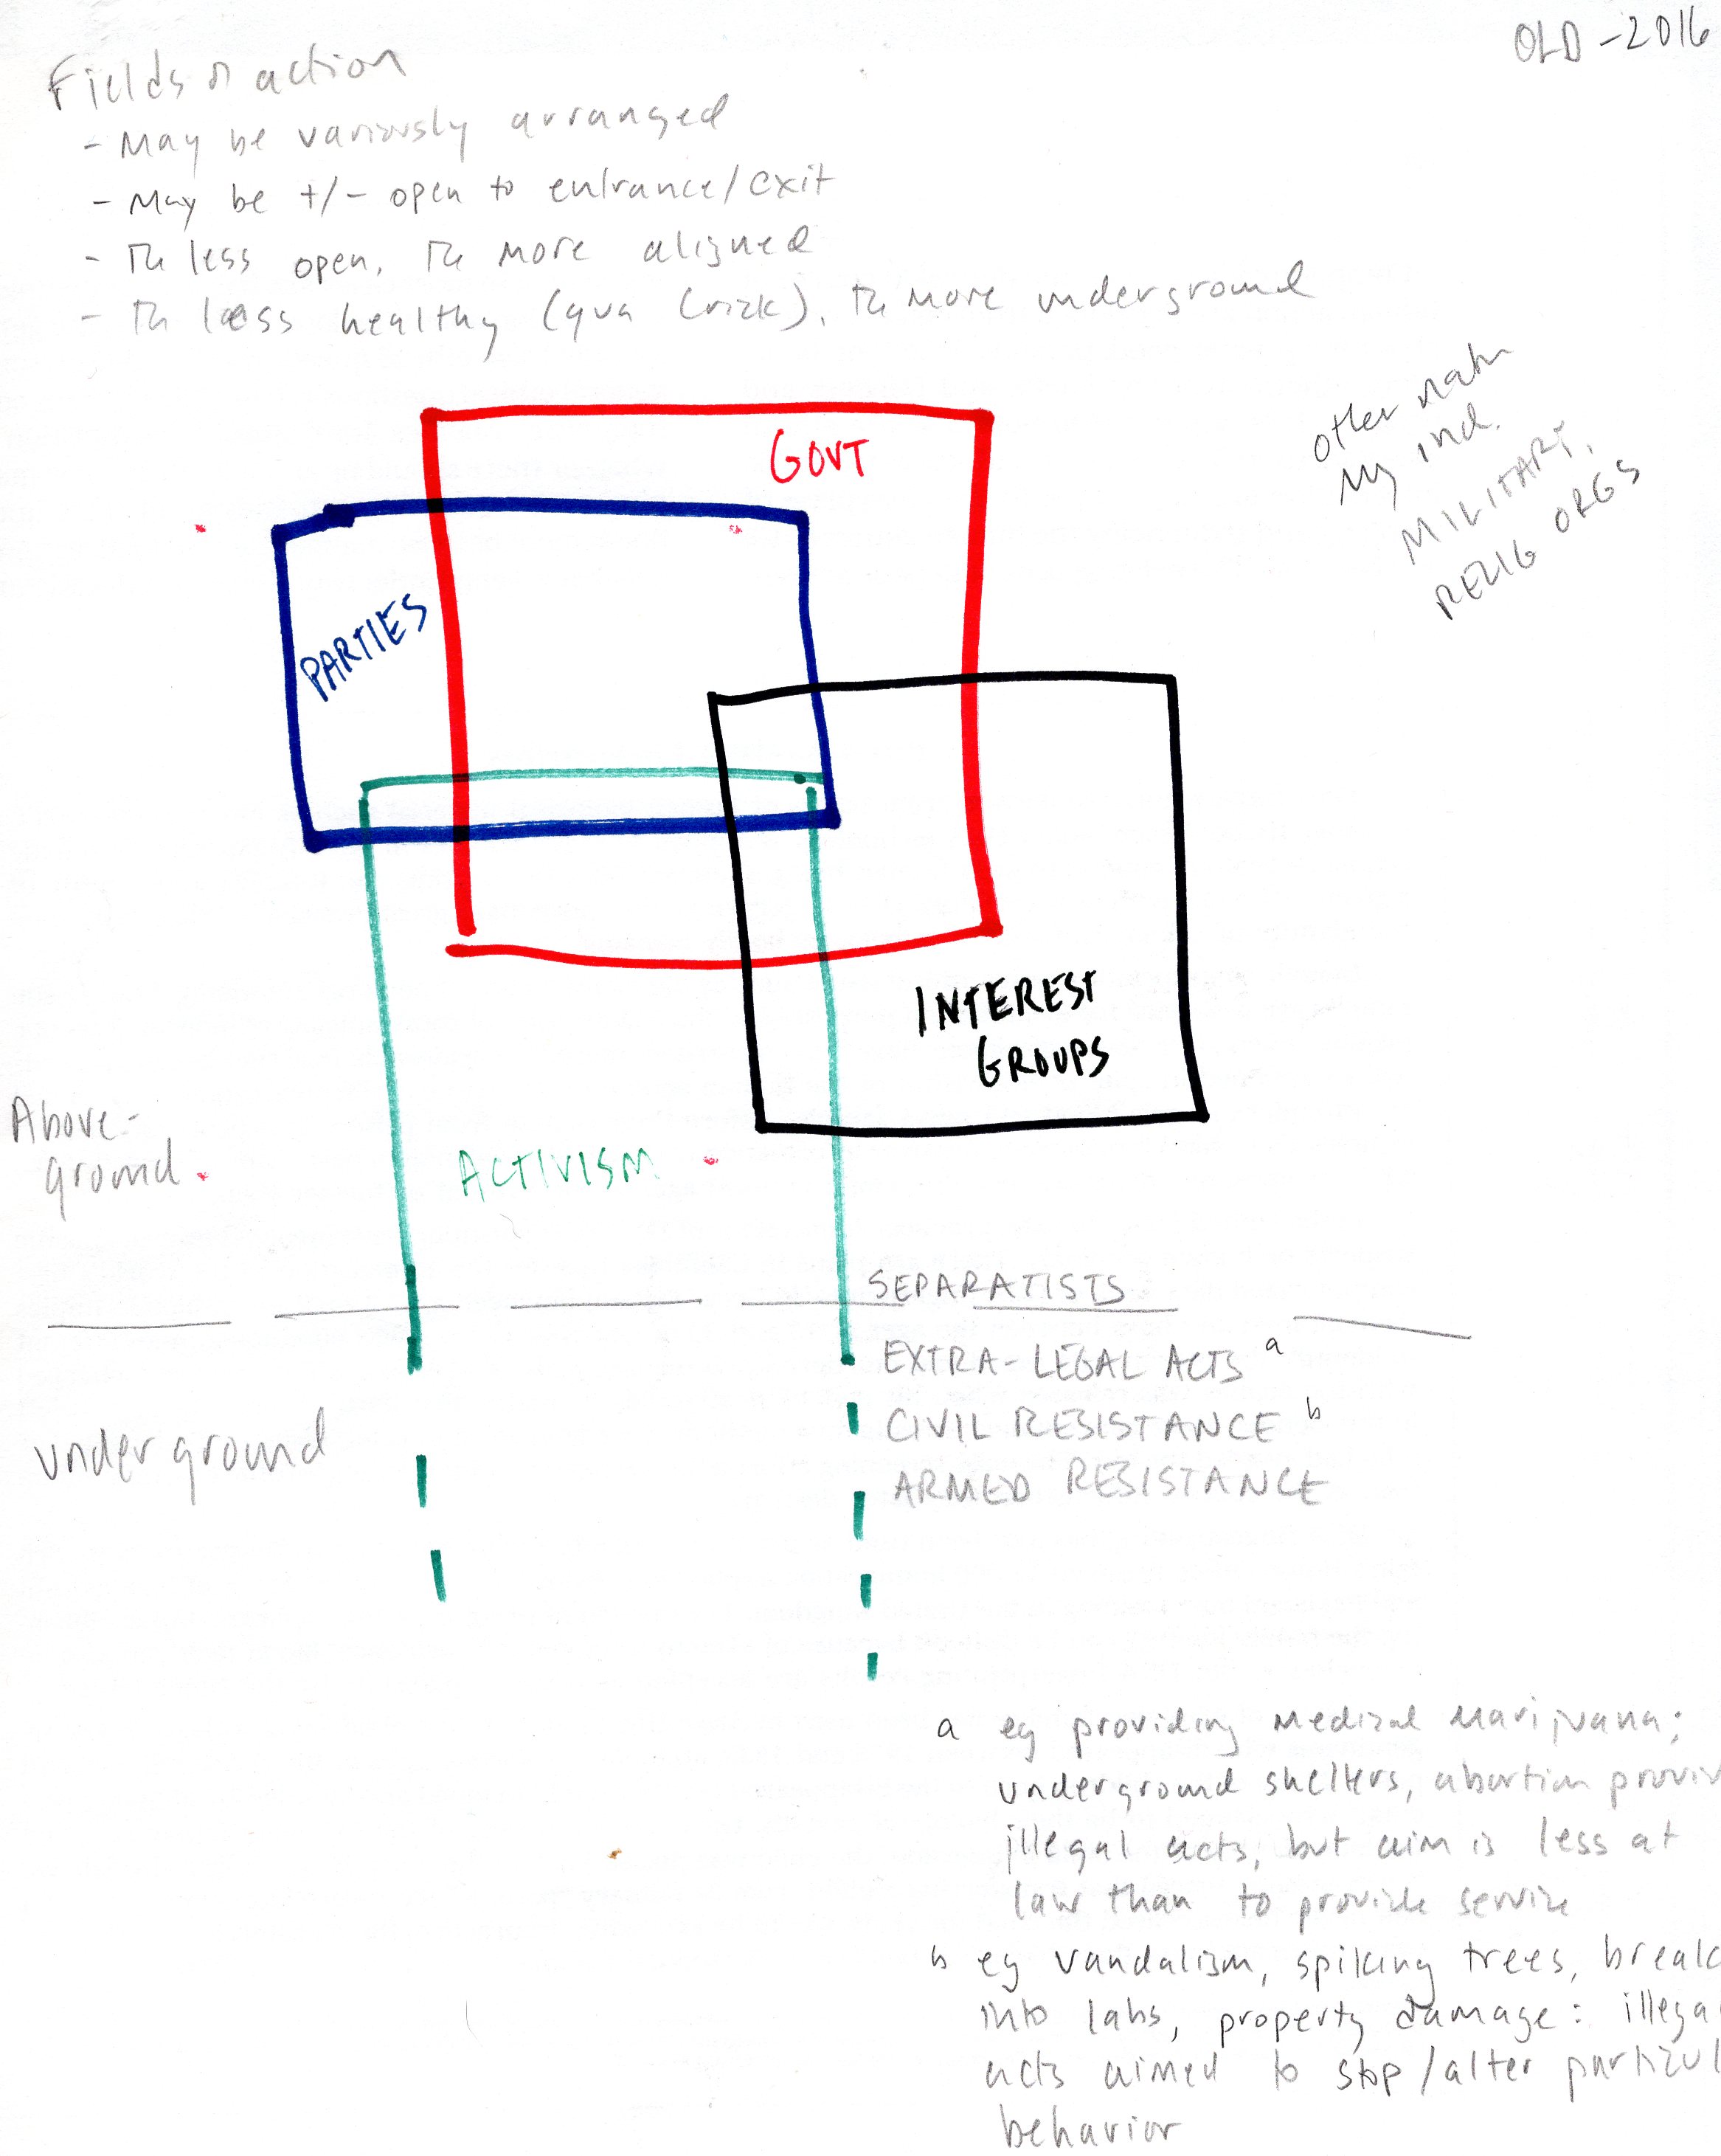 OLD - 2016
Fields of action
- May be variously arranged
- May be +/- open to entrance/exit
- The less open, the more aligned
- The less healthy (qua Crick), the more underground
other
may incl.
MILITARY,
RELIG ORGS
GOVT
PARTIES
INTEREST
GROUPS
Above-
ground
ACTIVISM
SEPARATISTS
EXTRA-LEGAL ACTS a
CIVIL RESISTANCE b
ARMED RESISTANCE
underground
a eg providing medical marijuana;
underground shelters, abortion
illegal acts, but aim is less at
law than to provide service
b eg vandalism, spiking trees,
into labs, property damage: illega
acts aimed to stop/alter
behavior